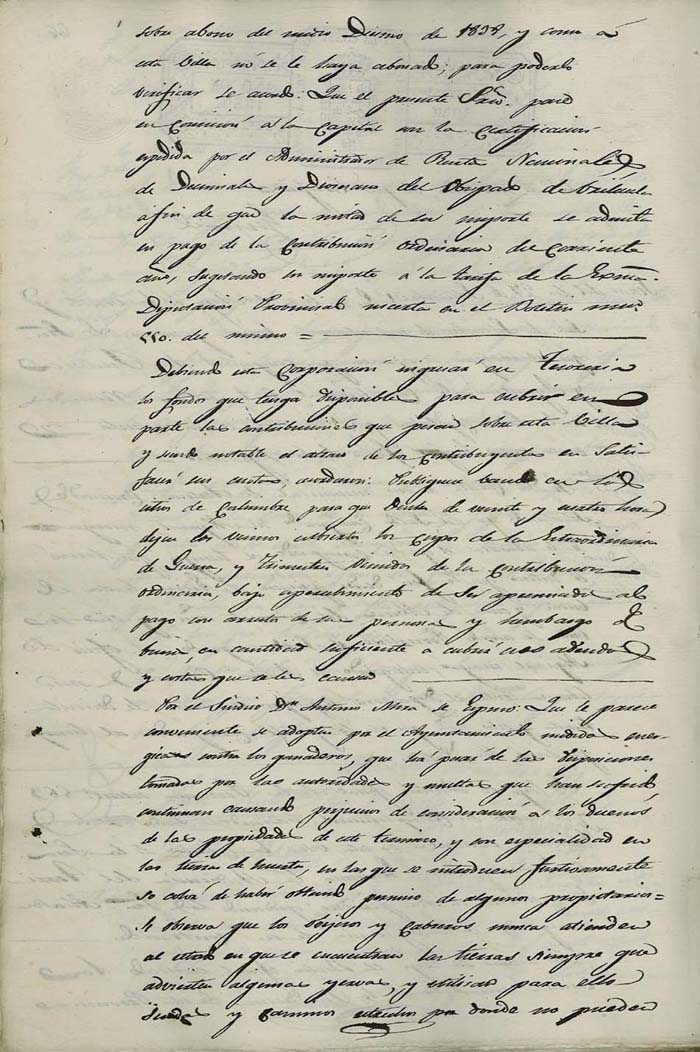 sobre abono del medio Diezmo de 1838, y como á
esta Villa no se le haya abonado; para poderlo
verificar se acordó: Que el presente Srio. pase
en Comision á la Capital con la Certificacion
espedida por el Administrador de Rentas Nacionales
de Decimales y Diocesano del Obispado de Orihuela
á fin de que la mitad de su importe se admita
en pago de la Contribucion ordinaria del Corriente
año, sugetando su importe á la tarifa de la Exma.
Diputacion Provincial inserta en el Boletin
550. del mismo =
Debiendo esta Corporacion ingresar en Tesoreria
los fondos que tenga disponibles para cubrir en
parte las contribuciones que pesan sobre esta Villa
y siendo notable el atraso de los Contribuyentes en Satis-
facer sus cuotas; acordaron: Publiquese bando en los
sitios de Costumbre para que dentro de veinte y cuatro horas
dejen los vecinos cubiertos los Cupos de la Extraordinaria
de Guerra, y trimestres vencidos de la Contribucion
ordinaria, bajo apercibimiento de Ser apremiados al
pago con arresto de sus personas y embargo de
bienes, en cantidad suficiente á cubrir sus adeudos
y costas que se les causen
Por el Sindico Dn. Antonio Mira se Espuso: Que le parece
conveniente se adopten por el Ayuntamiento medidas ener-
gicas contra los ganaderos, que há pesar de las disposiciones
tomadas por las autoridades y multas que han sufrido
continuan causando perjuicios de consideracion á los dueños
de las propiedades de este termino, y con especialidad en
las tierras de huerta, en las que se introducen furtivamente
so color de haber obtenido permiso de algunos propietarios=
Se observa que los Obejeros y Cabreros nunca atienden
al estado en que se encuentran las tierras siempre que
advierten algunas yervas, y utilizan para ello
Sendas y Caminos estrechos por donde no pueden